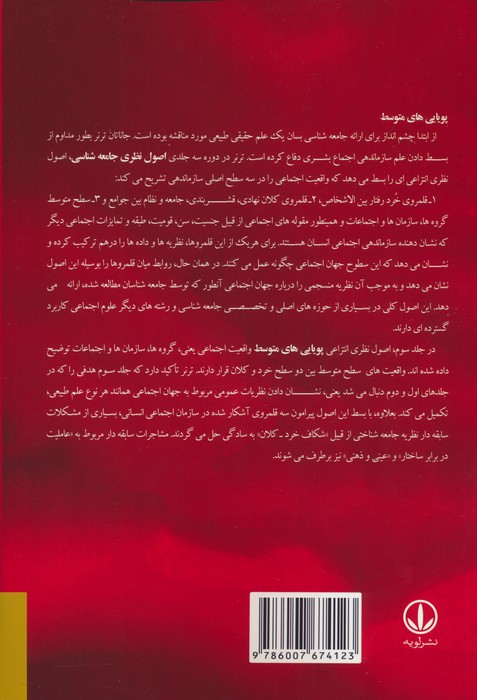 پویایی های متوسط
از ابتدا چشم انداز برای ارائه جامعه شناسی بسان یک علم حقیقی طبیعی مورد مناقشه بوده است. جاناتان ترنر بطور مداوم از
بسط دادن علم سازماندهی اجتماع بشری دفاع کرده است. ترنر در دوره سه جلدی اصول نظری جامعه شناسی، اصول
نظری انتزاعی ای را بسط می دهد که واقعیت اجتماعی را در سه سطح اصلی سازماندهی تشریح می کند:
۱-قلمروی خُرد رفتار بین الاشخاص، ۲-قلمروی کلان نهادی، قشربندی، جامعه و نظام بین جوامع و ۳-سطح متوسط
گروه ها، سازمان ها و اجتماعات و همینطور مقوله های اجتماعی از قبیل جنسیت، سن، قومیت، طبقه و تمایزات اجتماعی دیگر
که نشان دهنده سازماندهی اجتماعی انسان هستند. برای هریک از این قلمروها، نظریه ها و داده ها را درهم ترکیب کرده و
نشان می دهد که این سطوح جهان اجتماعی چگونه عمل می کنند. در همان حال، روابط میان قلمروها را بوسیله این اصول
نشان می دهد و به موجب آن نظریه منسجمی را درباره جهان اجتماعی آنطور که توسط جامعه شناسان مطالعه شده، ارائه می
دهد. این اصول کلی در بسیاری از حوزه های اصلی و تخصصی جامعه شناسی و رشته های دیگر علوم اجتماعی کاربرد
گسترده ای دارند.
در جلد سوم، اصول نظری انتزاعی پویایی های متوسط واقعیت اجتماعی یعنی، گروه ها، سازمان ها و اجتماعات توضیح
داده شده اند. واقعیت های سطح متوسط بین دو سطح خرد و کلان قرار دارند. ترنر تأکید دارد که جلد سوم هدفی را که در
جلدهای اول و دوم دنبال می شد یعنی، نشان دادن نظریات عمومی مربوط به جهان اجتماعی همانند هر نوع علم طبیعی،
تکمیل می کند. بعلاوه، با بسط این اصول پیرامون سه قلمروی آشکار شده در سازمان اجتماعی انسانی، بسیاری از مشکلات
سابقه دار نظریه جامعه شناختی از قبیل «شکاف خرد-کلان» به سادگی حل می گردند. مشاجرات سابقه دار مربوط به «عاملیت
در برابر ساختار» و «عینی و ذهنی» نیز برطرف می شوند.
نشر لویه
9 786007 674123